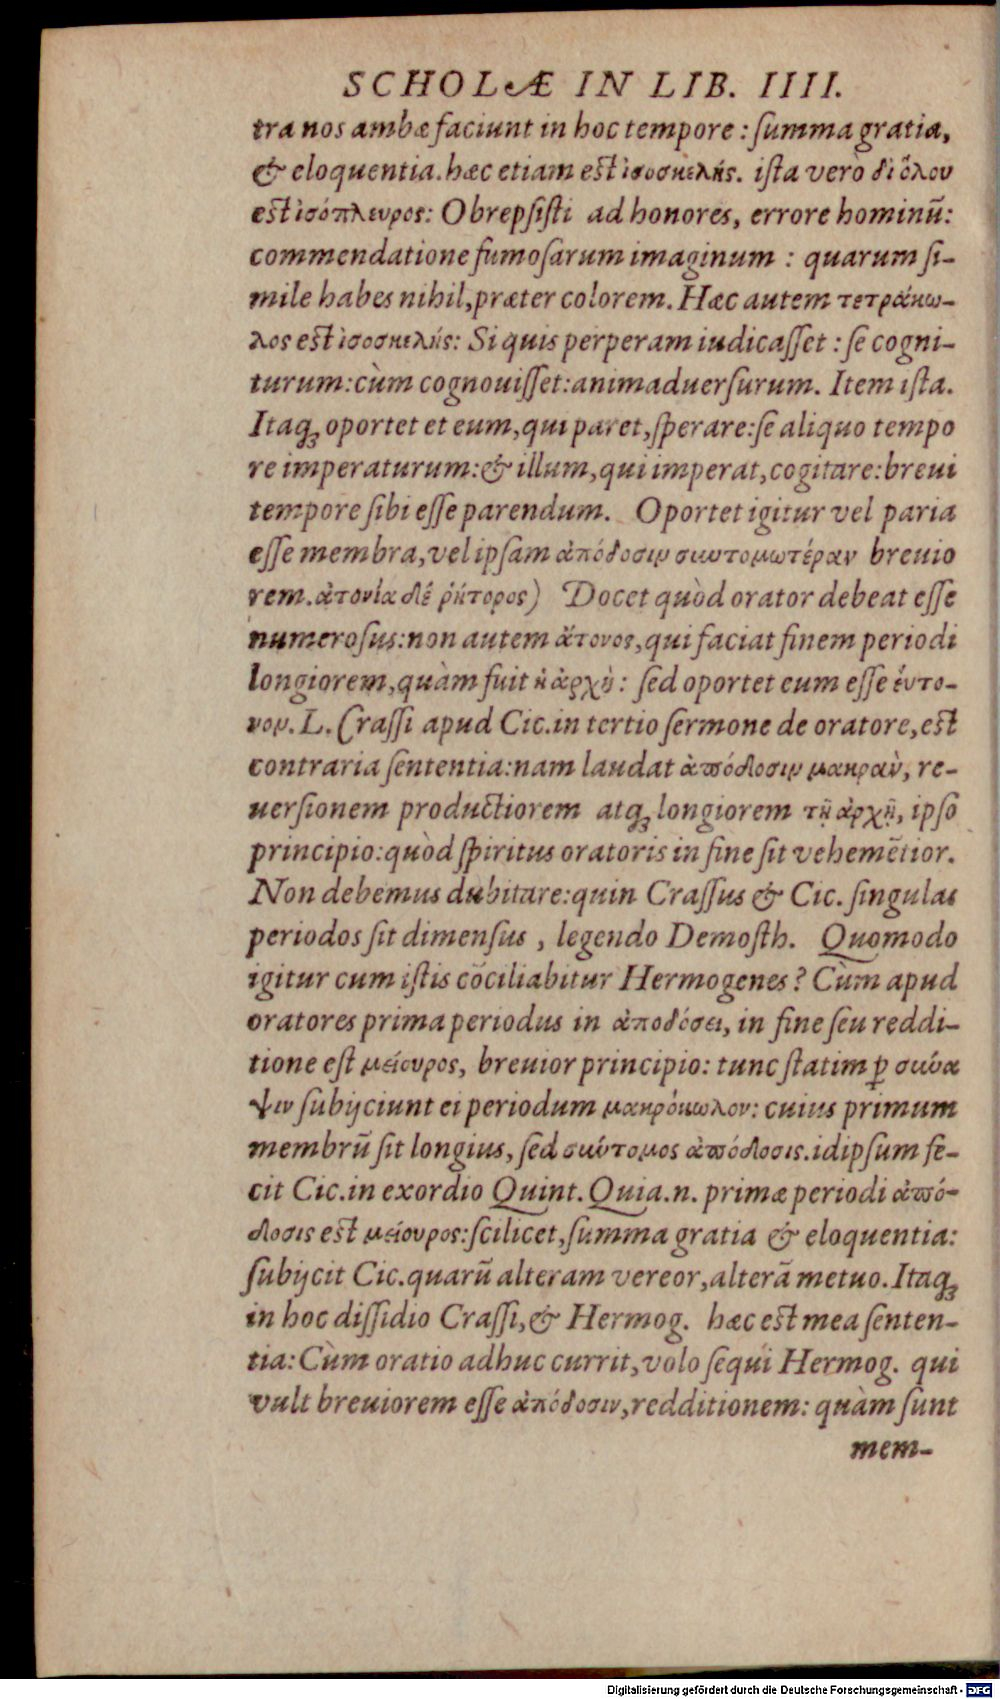 SCHOLÆ IN LIB. IIII.
tra nos ambæ faciunt in hoc tempore : ſumma gratia,
& eloquentia. hæc etiam est ἰσοσκελής. iſta verò δι ὅλου
est ἰσόπλευρος: Obrepſiſti ad honores, errore hominū:
commendatione fumoſarum imaginum : quarum ſi-
mile habes nihil, præter colorem. Hæc autem τετράκω-
λος est ἰσοσκελής: Si quis perperam iudicaſſet : ſe cogni-
turum: cùm cognouiſſet: animaduerſurum. Item iſta.
Itaqꝫ oportet et eum, qui paret, ſperare: ſe aliquo tempo
re imperaturum: & illum, qui imperat, cogitare: breui
tempore ſibi eſſe parendum. Oportet igitur vel paria
eſſe membra, vel ipſam ἀπόδοσιν συντομωτέραν breuio
rem. ἀτονία δὲ ῥήτορος) Docet quòd orator debeat eſſe
numeroſus: non autem ἄτονος, qui faciat finem periodi
longiorem, quàm fuit ἡ ἀρχὴ: ſed oportet eum eſſe ἔντο-
νον. L. Craſſi apud Cic. in tertio ſermone de oratore, est
contraria ſententia: nam laudat ἀπόδοσιν μακρὰν, re-
uerſionem productiorem atqꝫ longiorem τῇ ἀρχῇ, ipſo
principio: quòd ſpiritus oratoris in fine ſit vehemētior.
Non debemus dubitare: quin Craſſus & Cic. ſingulas
periodos ſit dimenſus , legendo Demoſth. Quomodo
igitur cum iſtis cōciliabitur Hermogenes? Cùm apud
oratores prima periodus in ἀποδόσει, in fine ſeu reddi-
tione eſt μείουρος, breuior principio: tunc ſtatim ꝑ σύνα
ψιν ſubijciunt ei periodum μακρόκωλον: cuius primum
membrū ſit longius, ſed σύντομος ἀπόδοσις. id ipſum fe-
cit Cic. in exordio Quint. Quia .n. primæ periodi ἀπό-
δοσις est μείουρος: ſcilicet, ſumma gratia & eloquentia:
ſubijcit Cic. quarū alteram vereor, alterā metuo. Itaqꝫ
in hoc diſſidio Craſſi, & Hermog. hæc est mea ſenten-
tia: Cùm oratio adhuc currit, volo ſequi Hermog. qui
vult breuiorem eſſe ἀπόδοσιν, redditionem: quàm ſunt
mem-
Digitalisierung gefördert durch die Deutsche Forschungsgemeinschaft - DFG